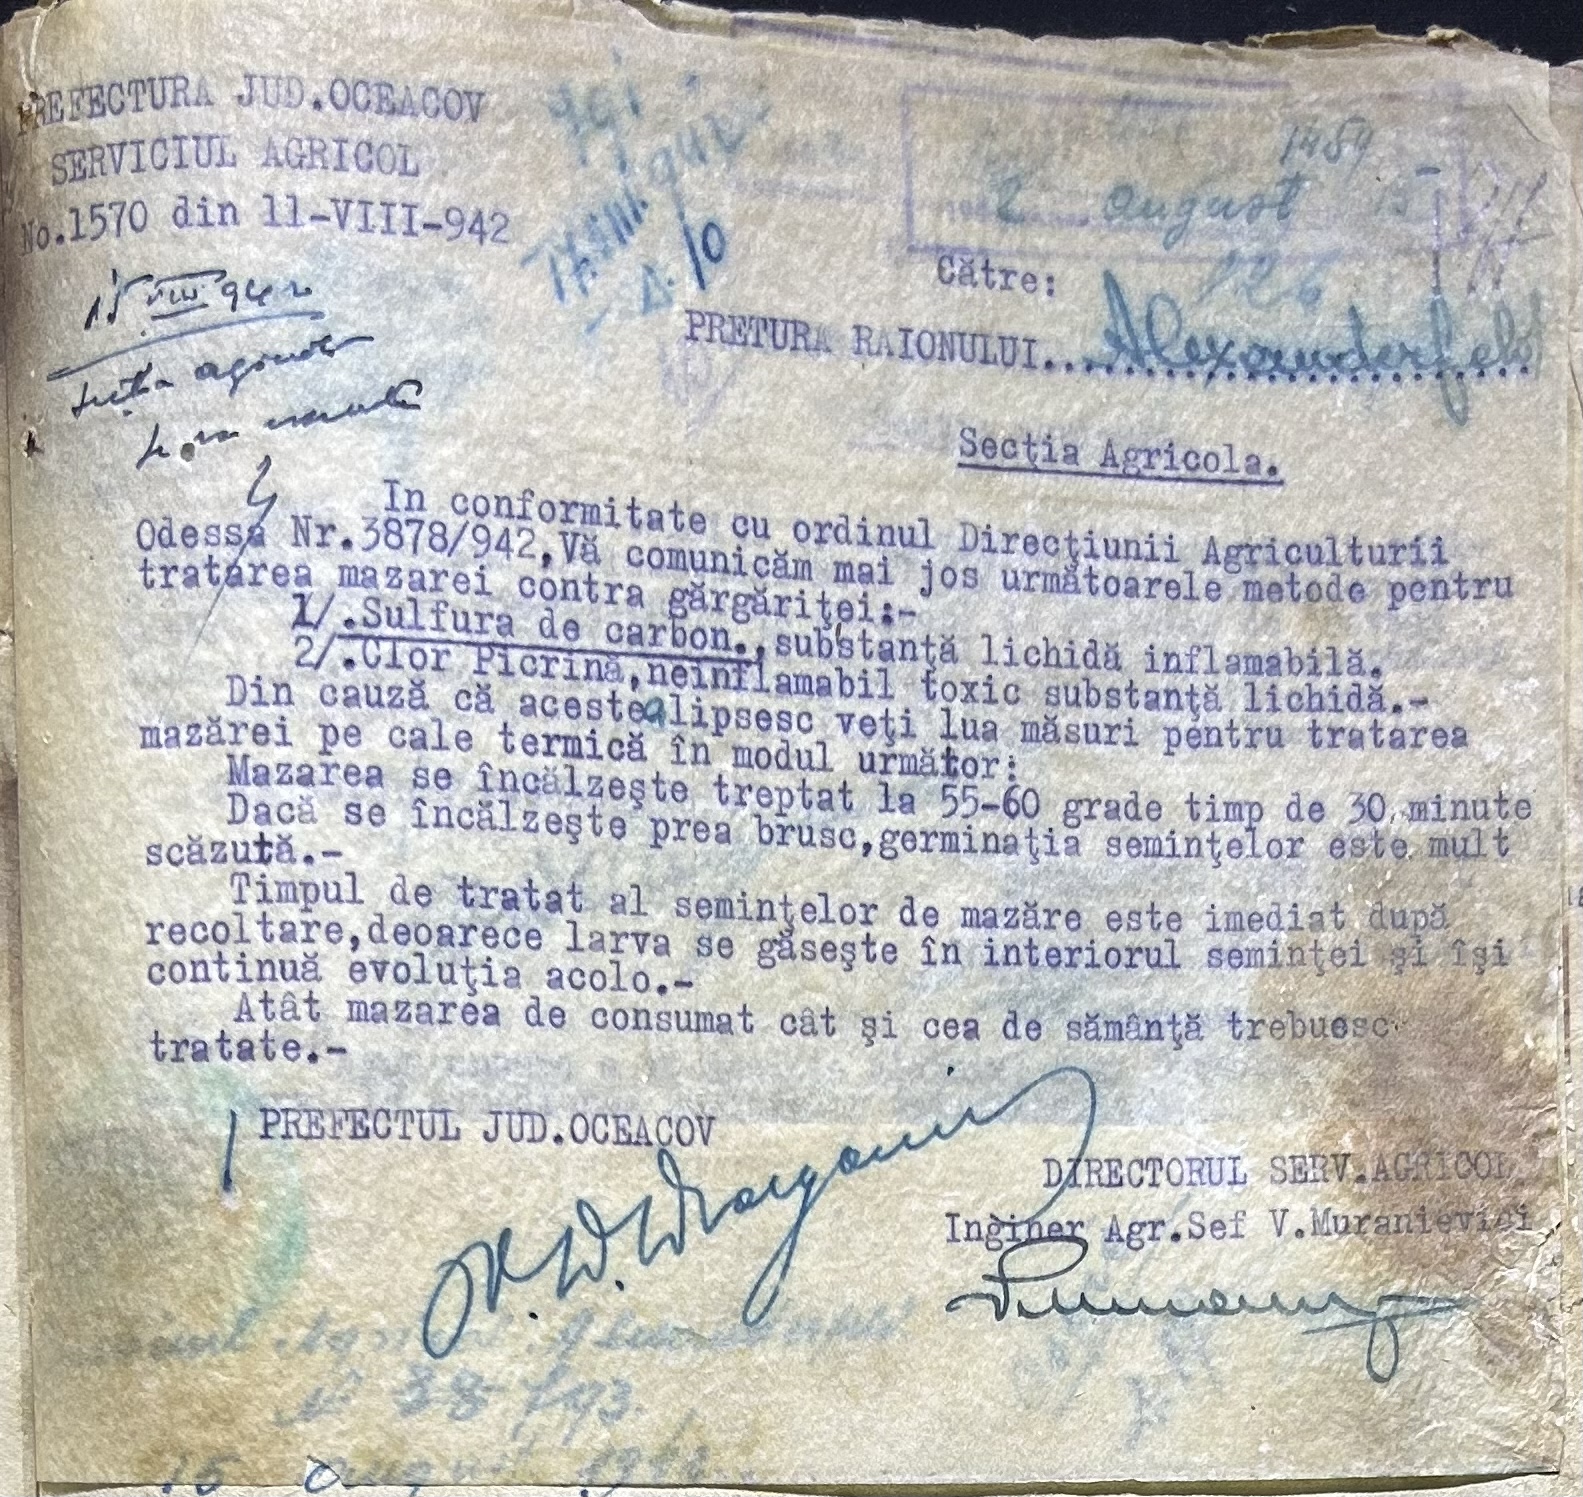 PREFECTURA JUD.OCEACOV
SERVICIUL AGRICOL
No.1570 din 11-VIII-942
1484
2 august 15
126
15 VIII 942
Către:
PRETURA RAIONULUI....Alexanderfeld
Secţia Agricola.
In conformitate cu ordinul Direcţiunii Agriculturii
Odessa Nr.3878/942,Vă comunicăm mai jos următoarele metode pentru
tratarea mazarei contra gărgăriţei:-
1/.Sulfura de carbon.,substanţă lichidă inflamabilă.
2/.Clor Picrină,neinflamabil toxic substanţă lichidă.-
Din cauză că acestea lipsesc veţi lua măsuri pentru tratarea
mazărei pe cale termică în modul următor:
Mazarea se încălzeşte treptat la 55-60 grade timp de 30 minute
Dacă se încălzeşte prea brusc,germinaţia seminţelor este mult
scăzută.-
Timpul de tratat al seminţelor de mazăre este imediat după
recoltare,deoarece larva se găseşte în interiorul seminţei şi îşi
continuă evoluţia acolo.-
Atât mazarea de consumat cât şi cea de sămânţă trebuesc
tratate.-
PREFECTUL JUD.OCEACOV
DIRECTORUL SERV.AGRICOL
Inginer Agr.Sef V.Muranievici
15 august 1942